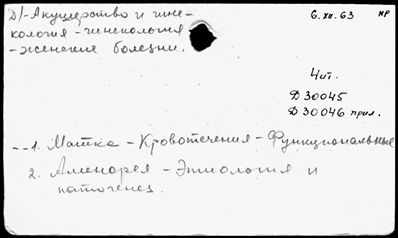 Д/-Акушерство и гине-
кология - гинекология
- женские болезни.
6.XII.63
НР
Чит.
Д 30045
Д 30046 прил.
--1. Матка - Кровотечения - Функциональные
2. Аменорея - Этиология и
патогенез.